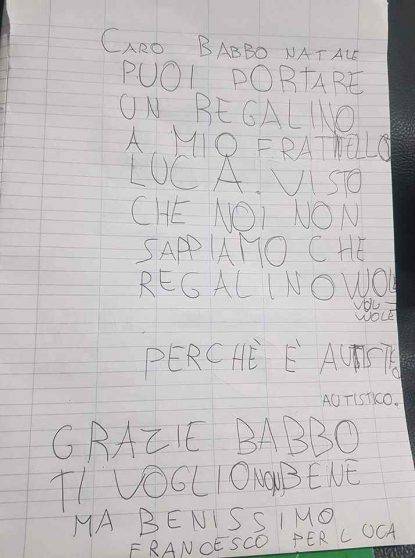 CARO BABBO NATALE
PUOI PORTARE
UN REGALINO
A MIO FRATTELLO
LUCA. VISTO
CHE NOI NON
SAPPIAMO CHE
REGALINO VUOLE
VOLE
PERCHÈ È AUTISTICO
AUTISTICO.
GRAZIE BABBO
TI VOGLIO NON BENE
MA BENISSIMO
FRANCESCO PER LUCA